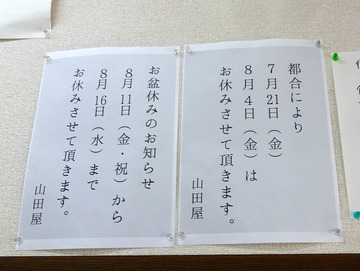 都合により
7月21日(金)
8月4日(金)は
お休みさせて頂きます。
山田屋
お盆休みのお知らせ
8月11日(金・祝)から
8月16日(水)まで
お休みさせて頂きます。
山田屋